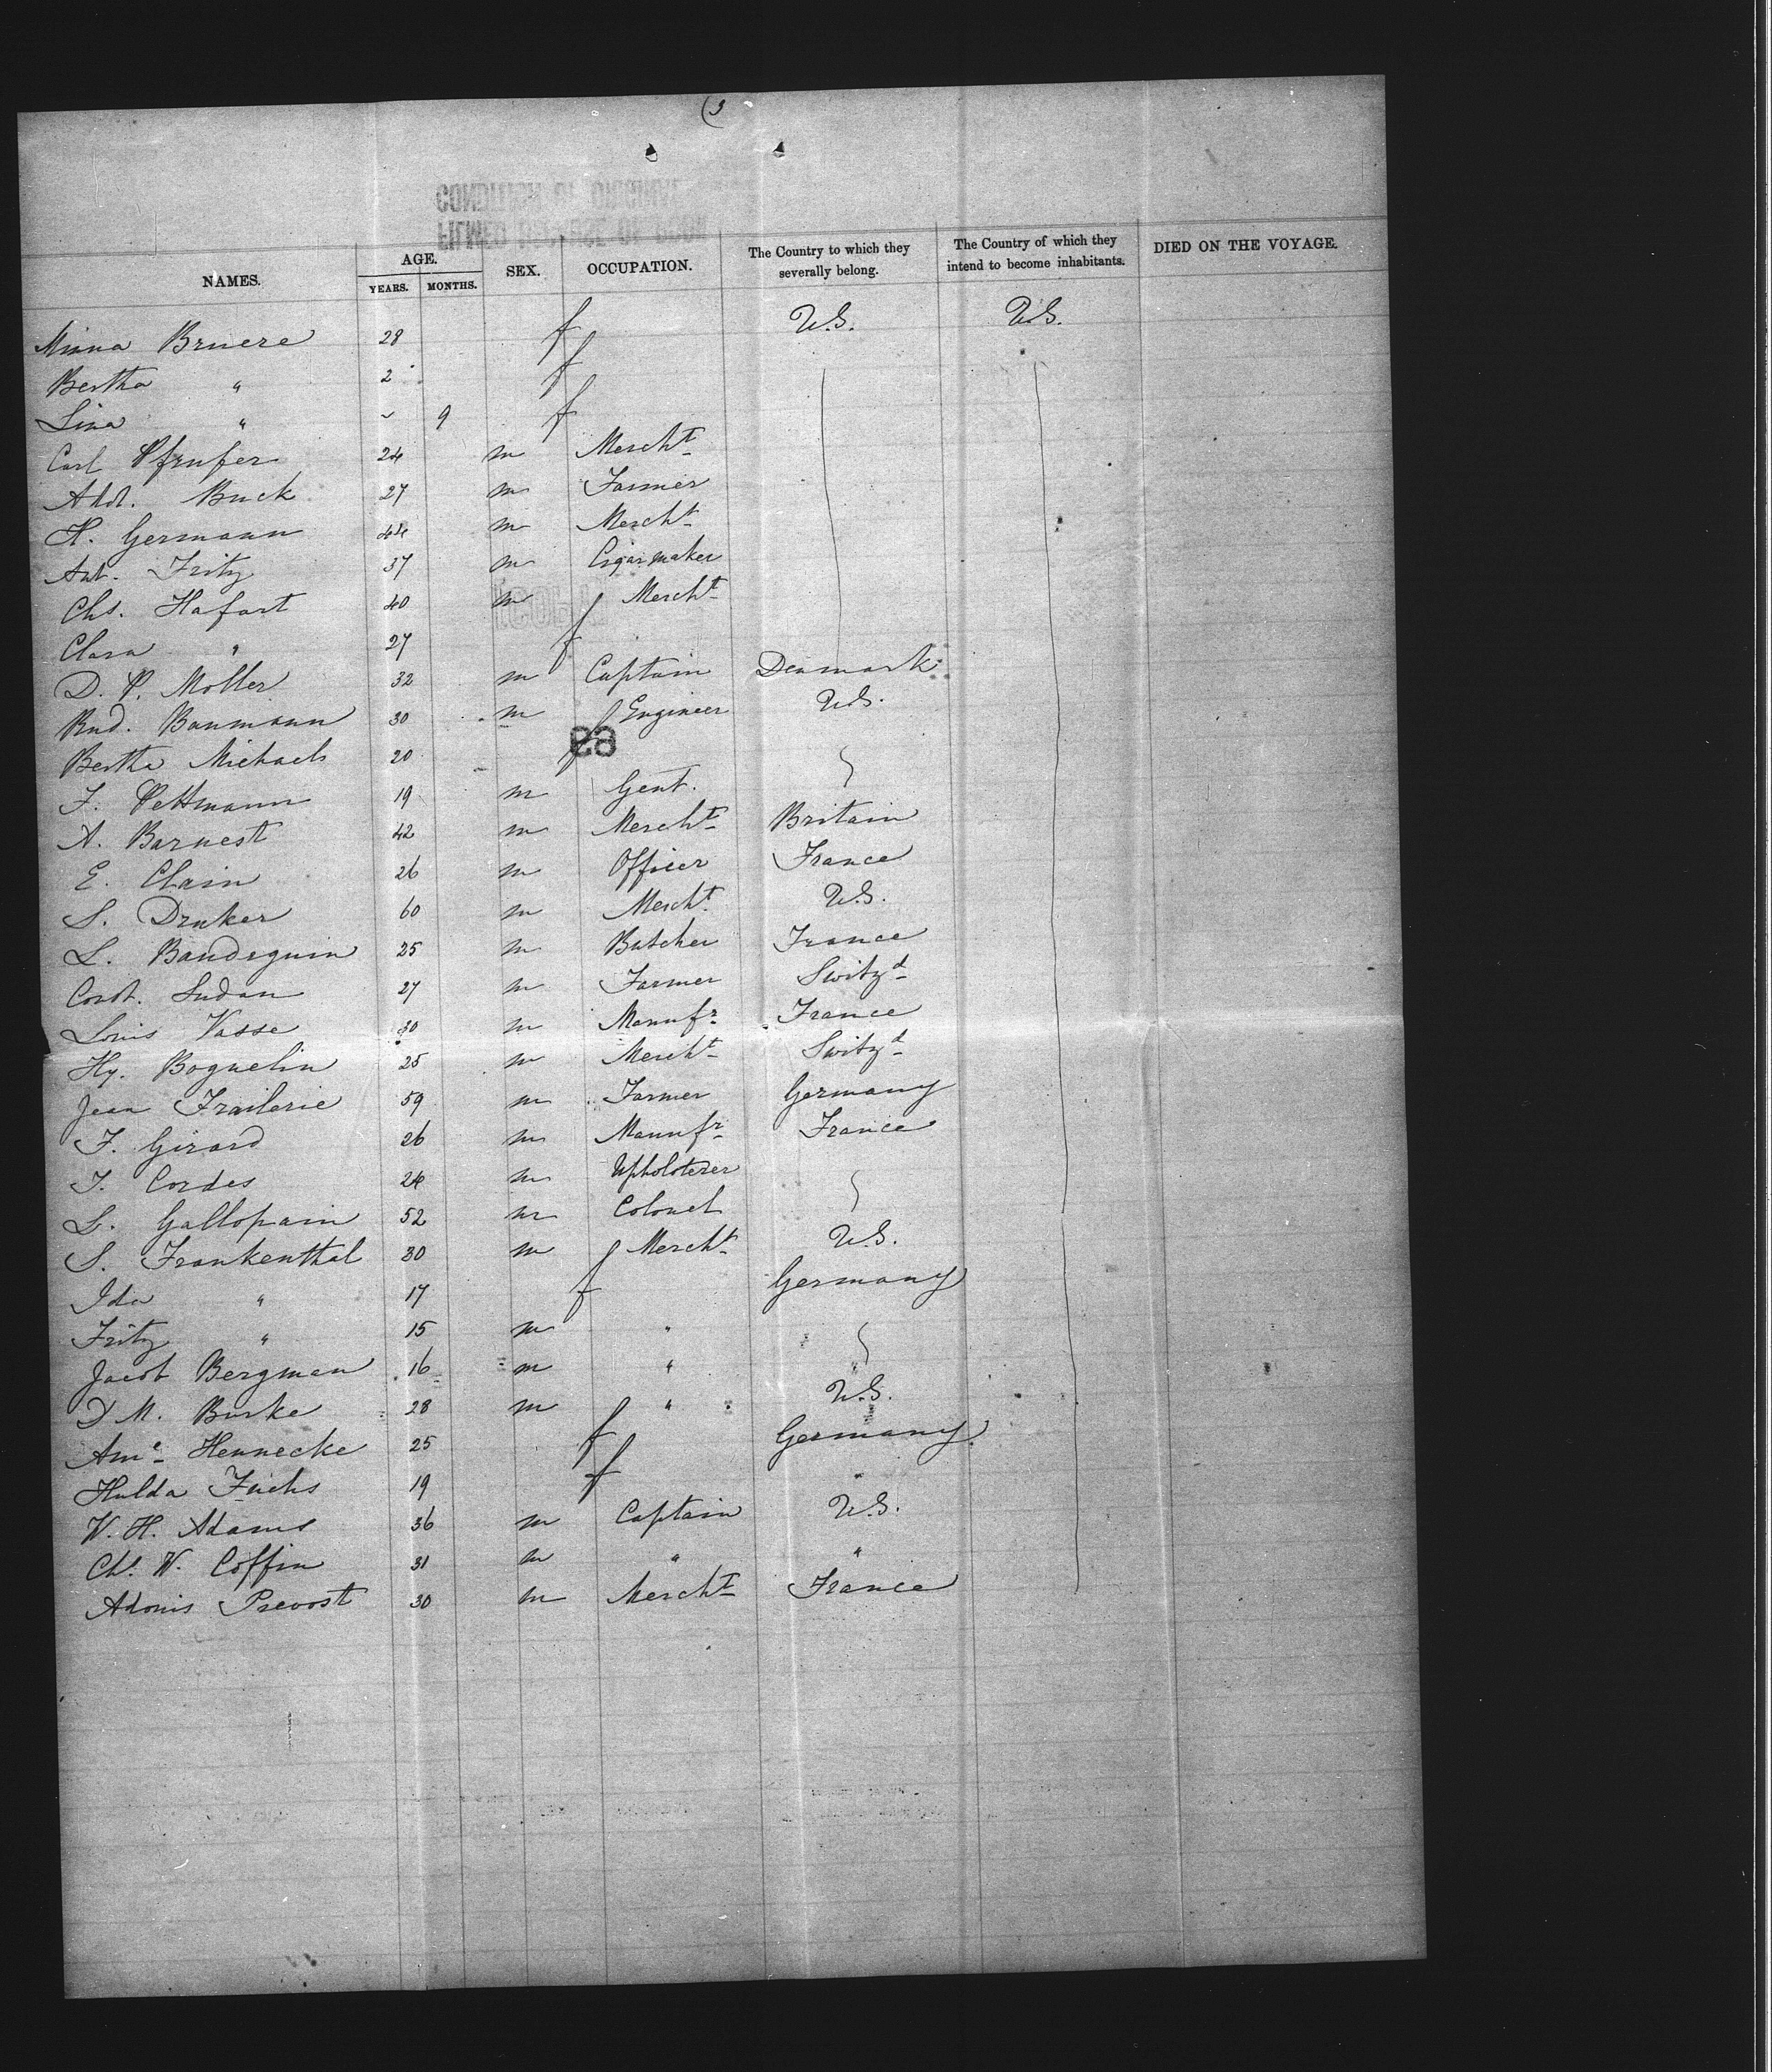 (3
NAMES. AGE. YEARS. MONTHS. SEX. OCCUPATION. The Country to which they severally belong. The Country of which they intend to become inhabitants. DIED ON THE VOYAGE.
Minna Bruere 28 f U.S. U.S.
Bertha " 2 f
Lina " ~ 9 f
Carl Pfrufer 24 m Mercht
Ahdt. Buck 27 m Farmer
H. Germann 44 m Mercht
Ant. Fritz 37 m Cigarmaker
Chs. Hafart 40 m Mercht
Clara " 27 f
D. P. Moller 32 m Captain Denmark
Rud. Baumann 30 m Engineer U.S.
Bertha Michaels 20 f
F. Pettmann 19 m Gent.
A. Barnest 42 m Mercht Britain
E. Clain 26 m Officer France
S. Druker 60 m Mercht. U.S.
L. Baudequin 25 m Butcher France
Const. Sudan 27 m Farmer Switzd
Louis Vasse 30 m Manufr France
Hy. Boguelin 25 m Mercht Switzd
Jean Frailerie 59 m Farmer Germany
F. Girard 26 m Manufr France
T. Cordes 24 m Upholsterer
L. Gallopain 52 m Colonel
S. Frankenthal 30 m Mercht U.S.
Ida " 17 f Germany
Fritz " 15 m "
Jacob Bergman 16 m " "
D M. Burke 28 m " U.S.
Ame Hennecke 25 f Germany
Hulda Fuchs 19 f "
W. H. Adams 36 m Captain U.S.
Chs. W. Coffin 31 m " "
Adonis Prevost 30 m Mercht France